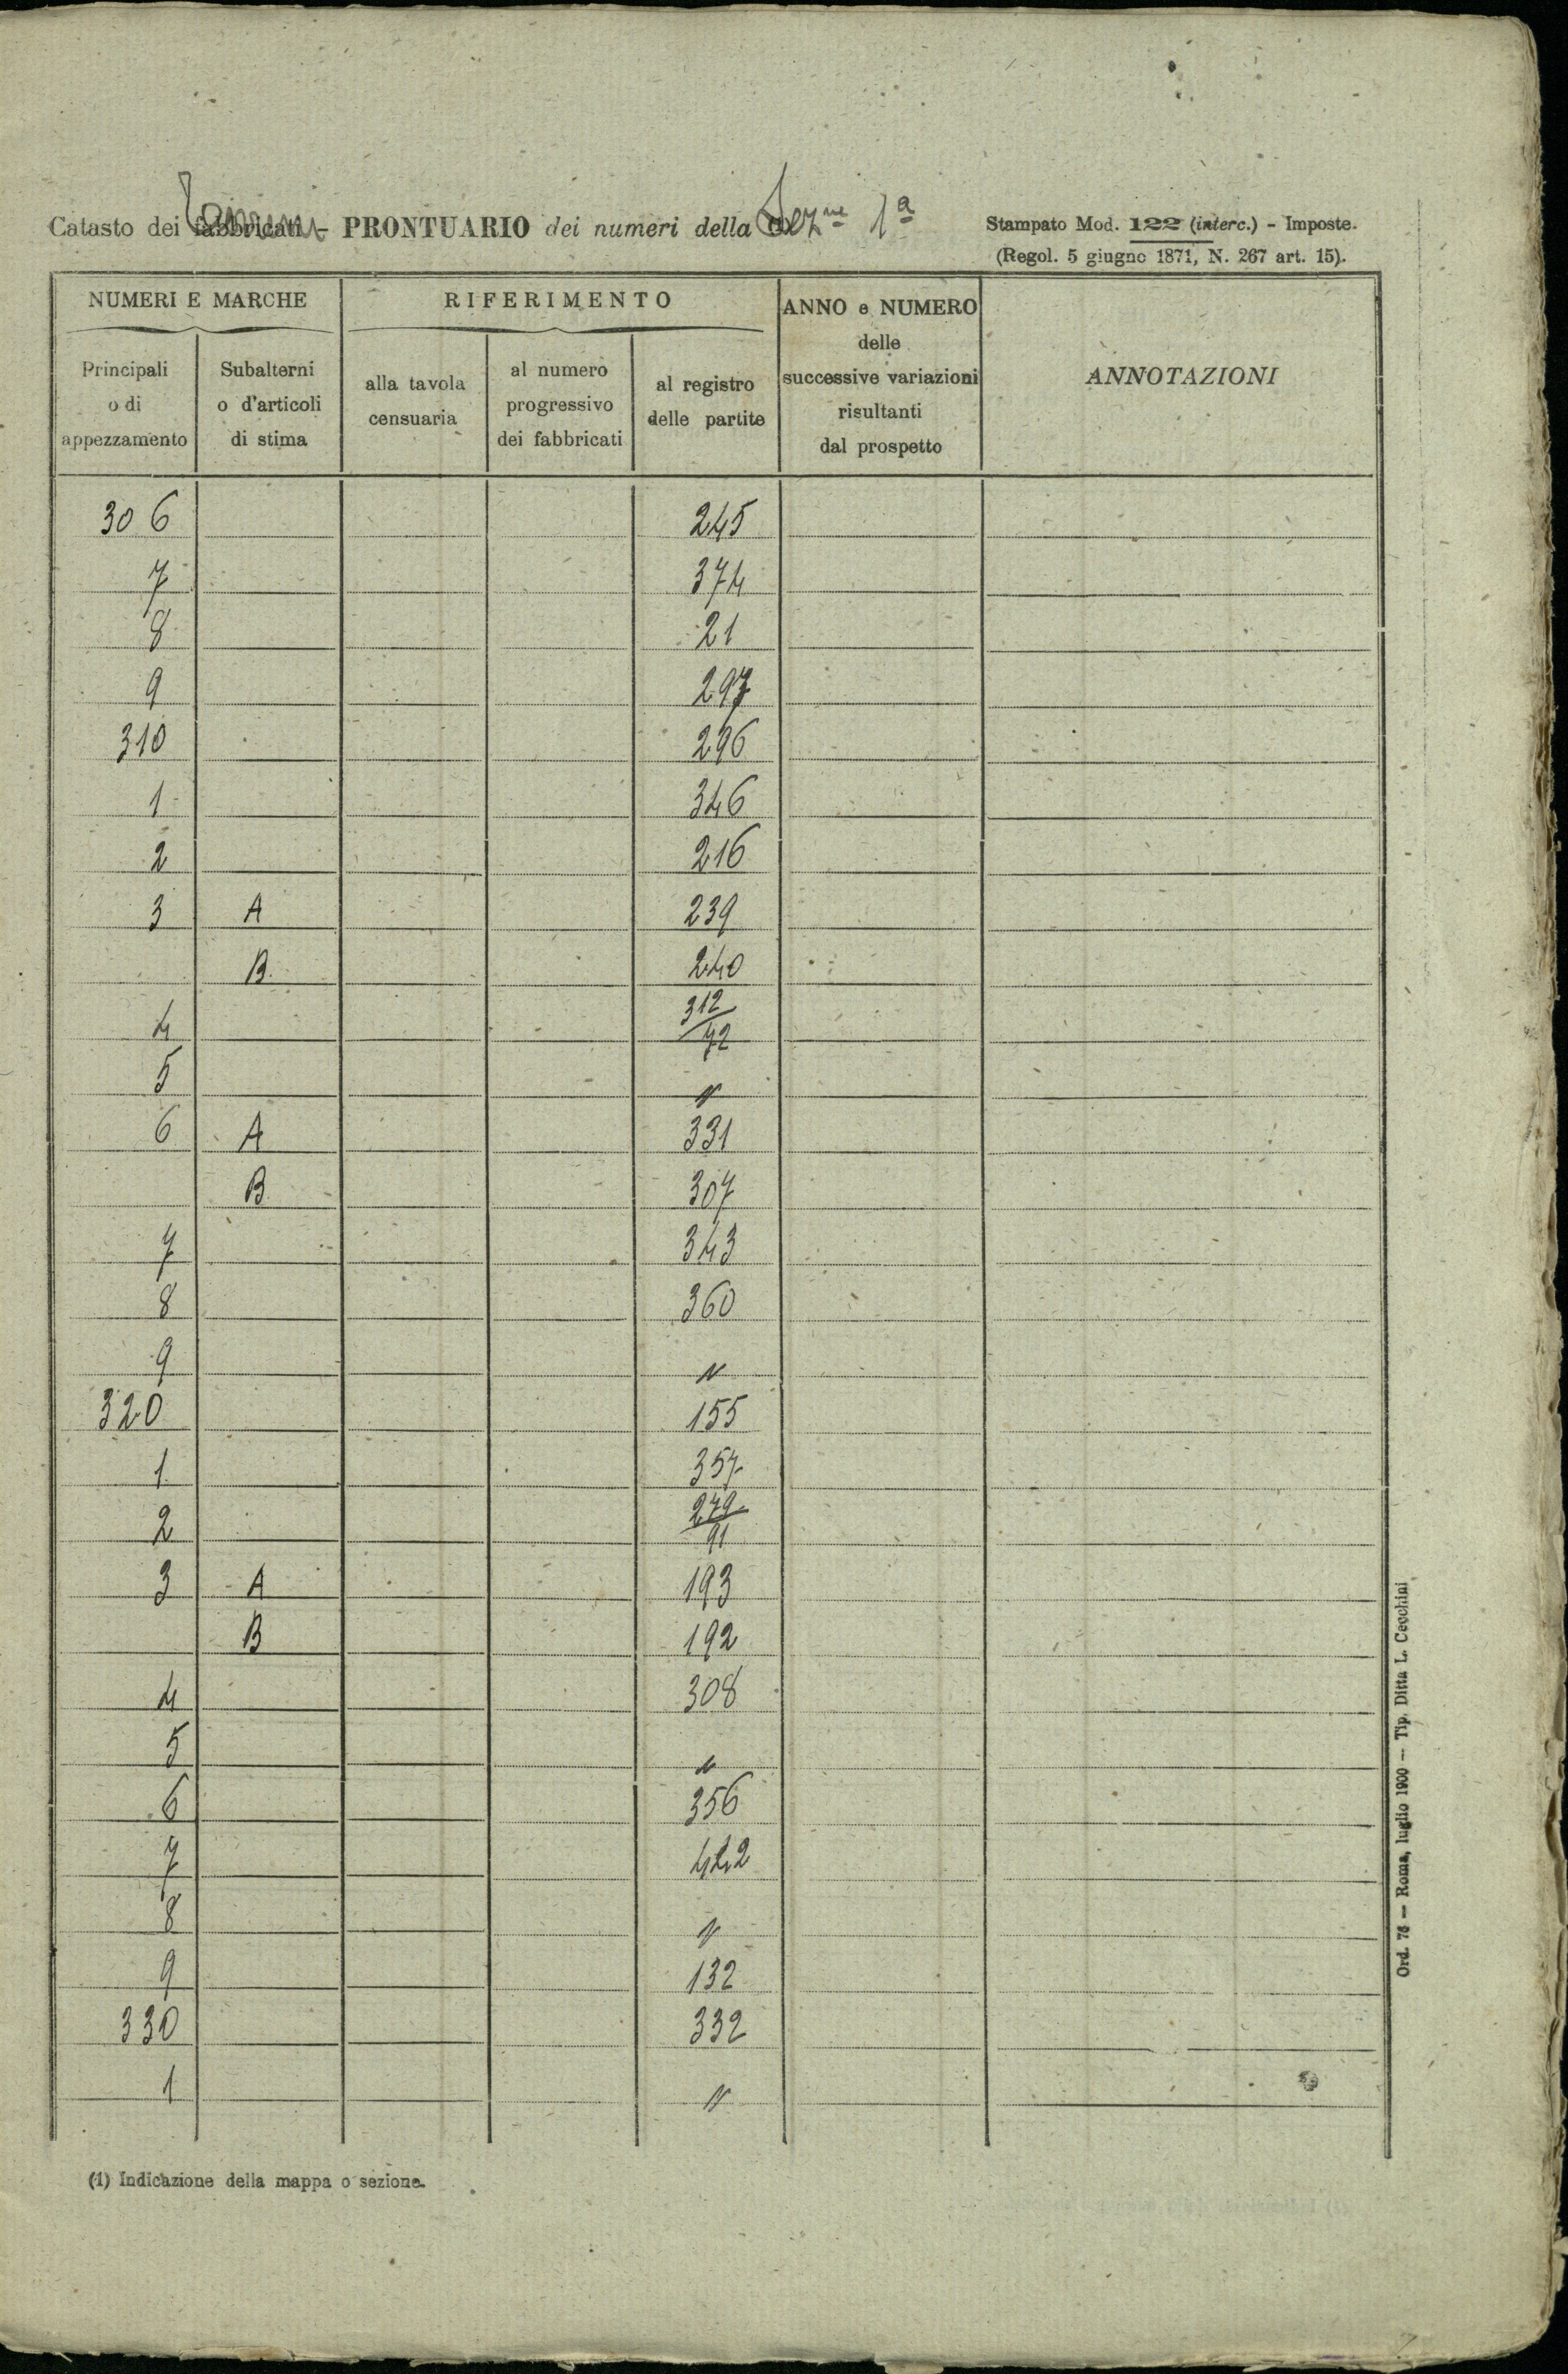 Catasto dei Terreni - PRONTUARIO dei numeri della Sez.ne 1a
Stampato Mod. 122 (interc.) - Imposte.
(Regol. 5 giugno 1871, N. 267 art. 15).
NUMERI E MARCHE RIFERIMENTO ANNO e NUMERO delle successive variazioni risultanti dal prospetto ANNOTAZIONI
Principali o di appezzamento Subalterni o d'articoli di stima alla tavola censuaria al numero progressivo dei fabbricati al registro delle partite
306 245
7 374
8 21
9 297
310 296
1 346
2 216
3 A 239
B 240
4 312/72
5 "
6 A 331
B 307
7 343
8 360
9 "
320 155
1 357
2 279/91
3 A 193
B 192
4 308
5 "
6 356
7 442
8 "
9 132
330 332
1 "
(1) Indicazione della mappa o sezione.
Ord. 76 — Roma, luglio 1900 — Tip. Ditta L. Cecchini